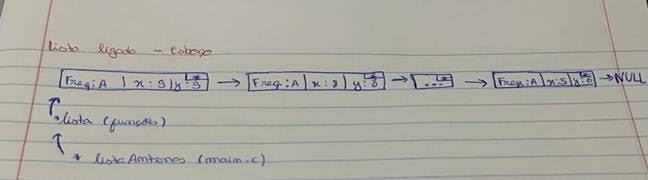 Lista ligada - cabeça
Freq: A | x: 9 | y: 9 → Freq: A | x: 8 | y: 8 → ... → Freq: A | x: 5 | y: 6 → NULL
* lista (funções)
* listaAntenas (main.c)